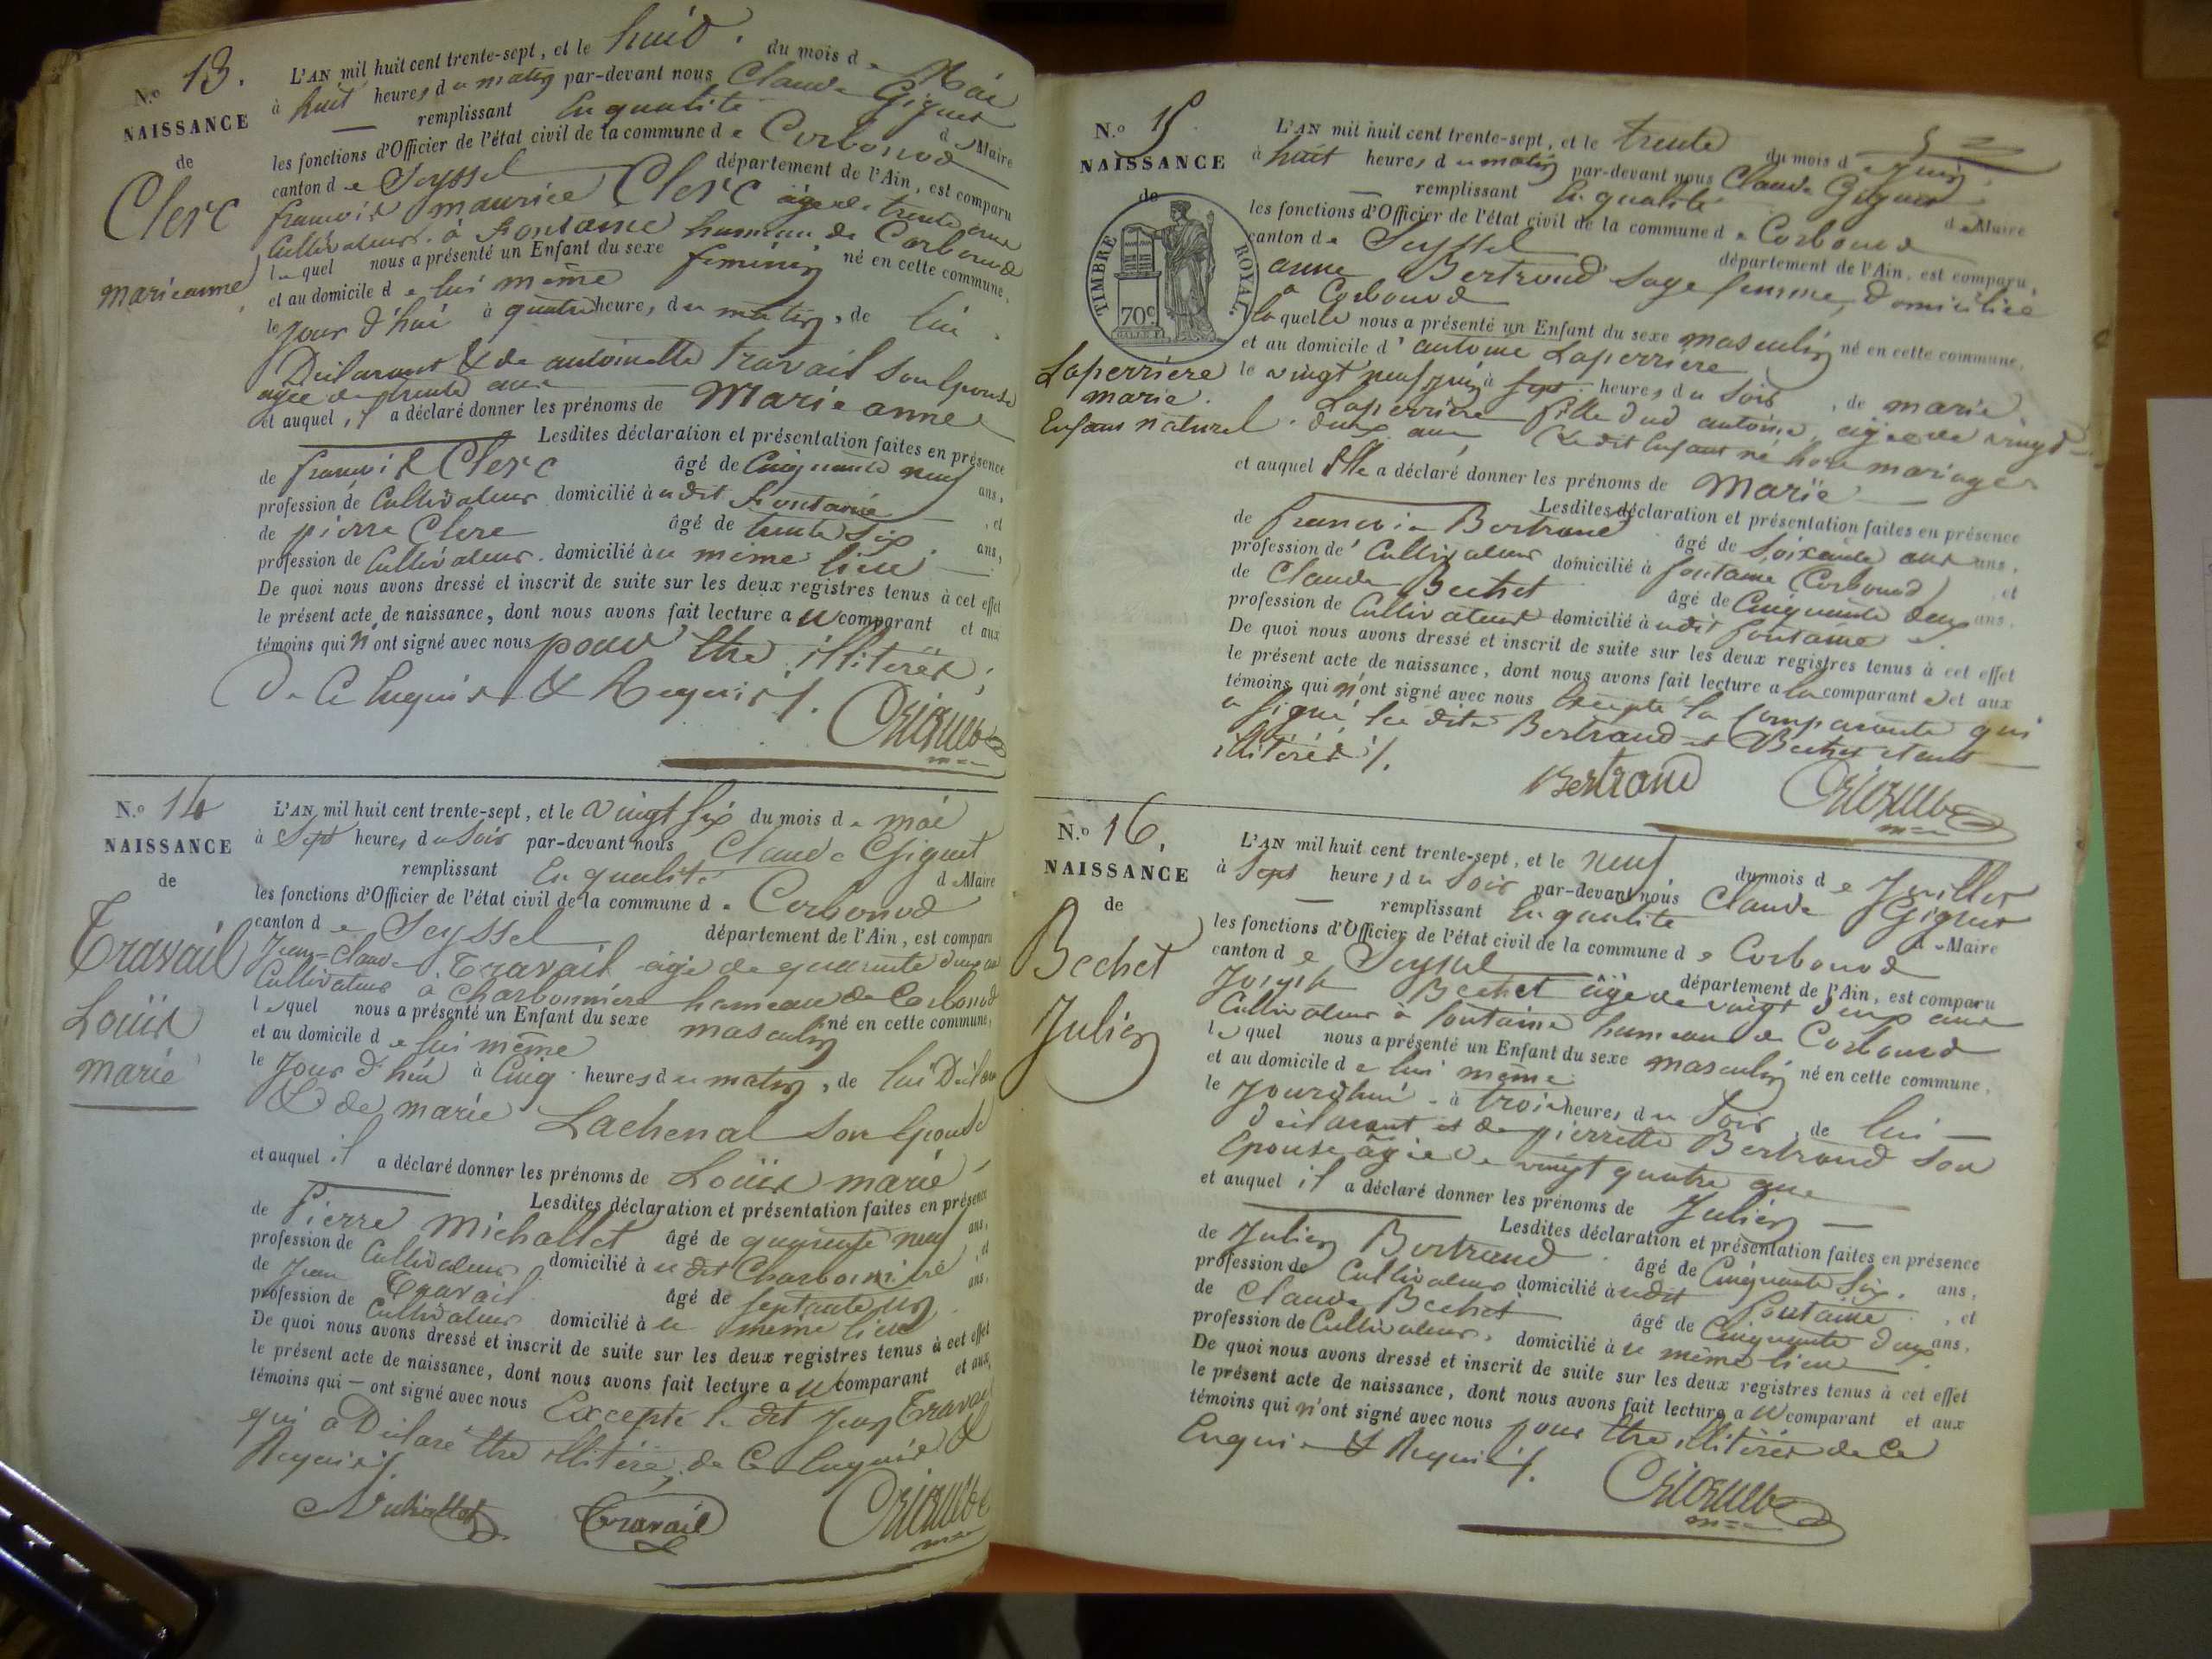 N.º 13.
NAISSANCE
de
Clerc
marieanne
L'AN mil huit cent trente-sept, et le huit. du mois de Mai
à huit heures du matin par-devant nous Claude Giguet
remplissant En qualité de Maire
les fonctions d'Officier de l'état civil de la commune de Corbonod
canton de Seyssel département de l'Ain, est comparu
francois maurice Clerc âgé de trente
Cultivateur à Fontaine hameau de Corbonod
lequel nous a présenté un Enfant du sexe feminin né en cette commune,
et au domicile de lui même
le jour d'hui à quatre heures du matin, de lui
Déclarant & de antoinette Travail son Epouse
agée de trente ans
et auquel il a déclaré donner les prénoms de Marie anne
Lesdites déclaration et présentation faites en présence
de francois Clerc âgé de Cinquante neuf ans,
profession de Cultivateur domicilié à udit Fontaine, et
de pierre Clerc âgé de trente six ans,
profession de Cultivateur. domicilié à u même lieu
De quoi nous avons dressé et inscrit de suite sur les deux registres tenus à cet effet
le présent acte de naissance, dont nous avons fait lecture a u comparant et aux
témoins qui n'ont signé avec nous pour être illiterés,
De Ce Enquis & Requis/.
N.º 14
NAISSANCE
de
Travail
Louis
marie
L'AN mil huit cent trente-sept, et le vingt six du mois de mai
à Sept heures du soir par-devant nous Claude Giguet
remplissant En qualité de Maire
les fonctions d'Officier de l'état civil de la commune de Corbonod
canton de Seyssel département de l'Ain, est comparu
Jean-Claude Travail âgé de quarante deux ans
Cultivateur à Charbonnière hameau de Corbonod
lequel nous a présenté un Enfant du sexe masculin né en cette commune,
et au domicile de lui même
le Jour d'hui à Cinq heures du matin, de lui Déclar
& de marie Lachenal son Epouse
et auquel il a déclaré donner les prénoms de Louis marie
Lesdites déclaration et présentation faites en présence
de Pierre Michallet âgé de quarante neuf ans,
profession de Cultivateur domicilié à udit Charbonnière, et
de Jean Travail âgé de septante un ans,
profession de Cultivateur domicilié à u même lieu
De quoi nous avons dressé et inscrit de suite sur les deux registres tenus à cet effet
le présent acte de naissance, dont nous avons fait lecture a u comparant et aux
témoins qui — ont signé avec nous Excepté le dit Jean Travail
qui a Déclaré être illitéré, de Ce Enquis &
Requis/.
Michallet Travail
N.º 15
NAISSANCE
de
TIMBRE ROYAL.
70c
Laperrière
marie.
Enfant naturel.
L'AN mil huit cent trente-sept, et le trente du mois de juin
à huit heures du matin par-devant nous Claude Giguet
remplissant En qualité de Maire
les fonctions d'Officier de l'état civil de la commune de Corbonod
canton de Seyssel département de l'Ain, est comparu,
anne Bertrand sage femme, domiciliée
a Corbonod
laquelle nous a présenté un Enfant du sexe masculin né en cette commune,
et au domicile d'antoine Laperrière
le vingt neuf juin à sept heures du soir, de marie
Laperrière fille dud antoine, agée de vingt
deux ans Le dit Enfant né hors mariage
et auquel Elle a déclaré donner les prénoms de Marie
Lesdites déclaration et présentation faites en présence
de francois Bertrand âgé de soixante ans,
profession de Cultivateur domicilié à fontaine (Corbonod), et
de Claude Bechet âgé de Cinquante deux ans,
profession de Cultivateur domicilié à udit fontaine
De quoi nous avons dressé et inscrit de suite sur les deux registres tenus à cet effet
le présent acte de naissance, dont nous avons fait lecture a la comparante et aux
témoins qui n'ont signé avec nous Excepté la Comparante qui
a signé les dits Bertrand et Bechet étant
illitérés/.
Bertrand
N.º 16.
NAISSANCE
de
Bechet
Julien
L'AN mil huit cent trente-sept, et le neuf du mois de Juillet
à Sept heures du Soir par-devant nous Claude Giguet
remplissant En qualité de Maire
les fonctions d'Officier de l'état civil de la commune de Corbonod
canton de Seyssel département de l'Ain, est comparu
Joseph Bechet âgé de vingt deux ans
Cultivateur à fontaine hameau de Corbonod
lequel nous a présenté un Enfant du sexe masculin né en cette commune,
et au domicile de lui même
le Jourd'hui à trois heures du Soir, de lui —
déclarant et de pierrette Bertrand son
Epouse âgée de vingt quatre ans
et auquel il a déclaré donner les prénoms de Julien —
Lesdites déclaration et présentation faites en présence
de Julien Bertrand âgé de Cinquante six. ans,
profession de Cultivateur domicilié à udit fontaine, et
de Claude Bechet âgé de Cinquante deux ans,
profession de Cultivateur. domicilié à u même lieu
De quoi nous avons dressé et inscrit de suite sur les deux registres tenus à cet effet
le présent acte de naissance, dont nous avons fait lecture a u comparant et aux
témoins qui n'ont signé avec nous pour être illitérés de Ce
Enquis & Requis/.